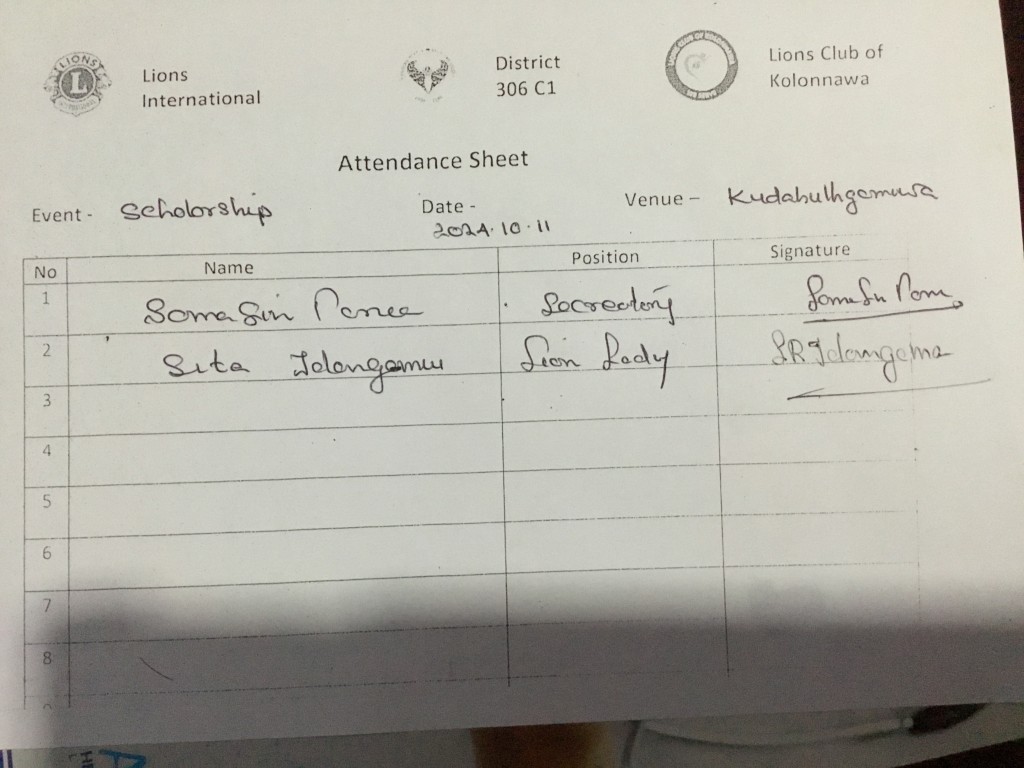 LIONS
L
INTERNATIONAL
Lions
International
District
306 C1
Lions Club of
Kolonnawa
Attendance Sheet
Event - Scholorship
Date -
2024.10.11
Venue - Kudabuthgamuwa
No Name Position Signature
1 Soma Siri Socreatory
2 Sita Lion Lady
3
4
5
6
7
8